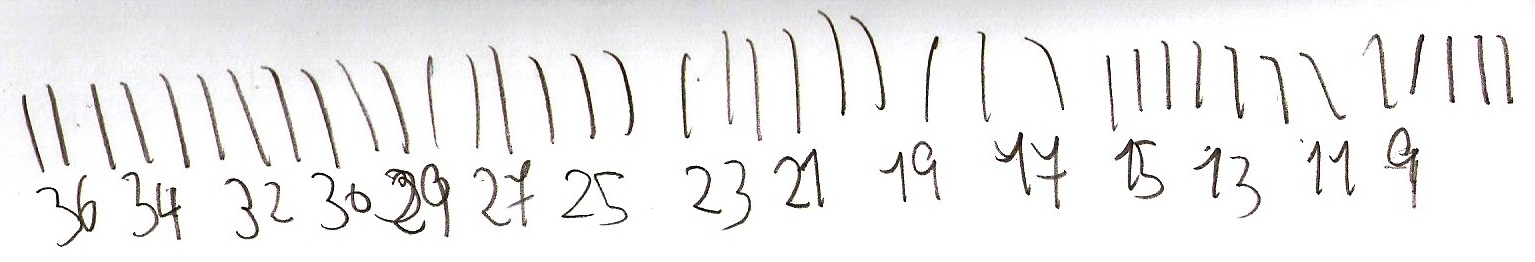 36 34 32 30 29 27 25 23 21 19 17 15 13 11 9